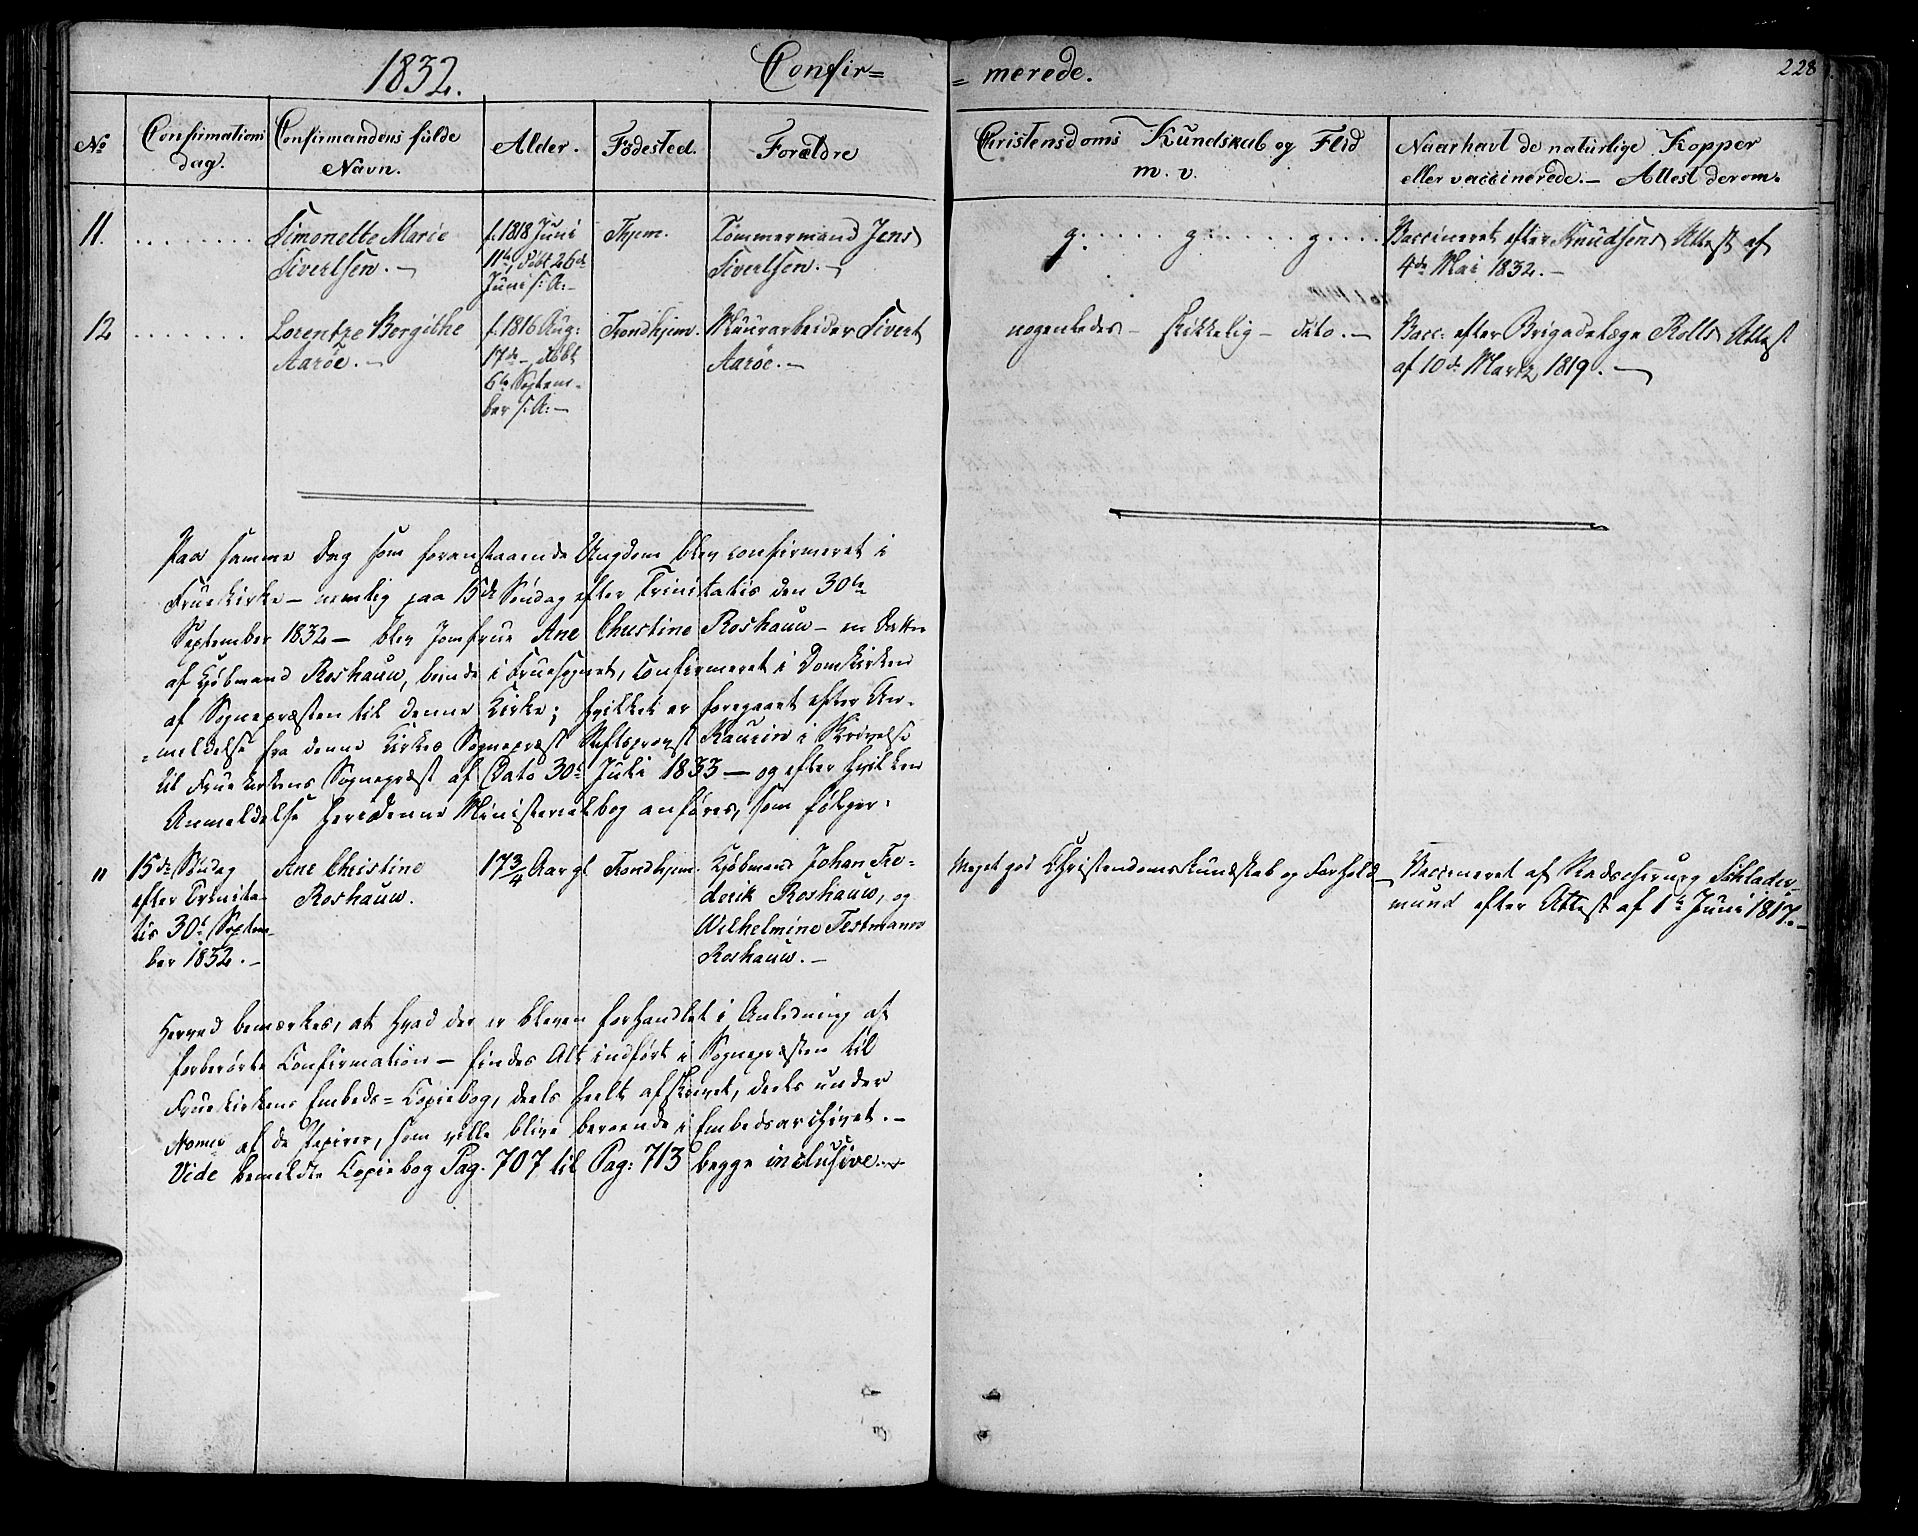 1832.
Confir=
= merede.
228
No
Confirmations
dag.
Confirmandens fulde
Navn.
Alder.
Födested.
Forældre
Christensdoms Kundskab og Flid
m. v.
Naar havt de naturlige Kopper
eller vaccinerede. — Attest derom.
11.
Simonette Marie
Sivertsen. —
f. 1818 Juni
11te, döbt 26de
Juni s: A: —
Thjem.
Tömmermand Jens
Sivertsen. —
g. . . . . . g. . . . . . g. . . . .
Vaccineret efter Knudsens Attest af
4de Mai 1832. —
12
Lorentze Bergithe
Aaröe. —
f. 1816 Aug:
17de — döbt
6te Septem-
ber s: A: —
Trondhjem.
Muurarbeider Sivert
Aaröe. —
nogenledes — skikkelig — dito. —
Vacc: efter Brigadelæge Rolls Attest
af 10de Martz 1819. —
Paa samme Dag som foranstaaende Ungdom blev confirmeret i
Fruekirke — nemlig paa 15de Söndag efter Trinitatis den 30te
September 1832 — blev Jomfrue Ane Christine Roshauw — en Datter
af Kjöbmand Roshauw, boende i Fruesognet, confirmeret i Domkirken
af Sognepræsten til denne Kirke; hvilket er foregaaet efter An-
=meldelse fra denne Kirkes Sognepræst Stiftsprovst Kaurin i Skrivelse
til Fruekirkens Sognepræst af Dato 30te Juli 1833 — og efter hvilken
Anmeldelse heri denne Ministerialbog anföres, som fölger:
"
15de Söndag
efter Trinita-
tis 30te Septem-
ber 1832. —
Ane Christine
Roshauw.
17 3/4 Aar gl
Trondhjem.
Kjöbmand Johan Fre-
derik Roshauw, og
Wilhelmine Testmann
Roshauw. —
Meget god Christendomskundskab og Forhold —
Vaccineret af Stadschirurg Schlader-
mund efter Attest af 1te Juni 1817. —
Herved bemærkes, at hvad der er bleven forhandlet i Anledning af
forberörte Confirmation — findes Alt indfört i Sognepræsten til
Fruekirkens Embeds=Copiebog, deels heelt afskrevet, deels under
Nomer af de Papirer, som ville blive beroende i Embedsarchivet. —
Vide bemeldte Copiebog Pag. 707 til Pag: 713 begge inclusive. —